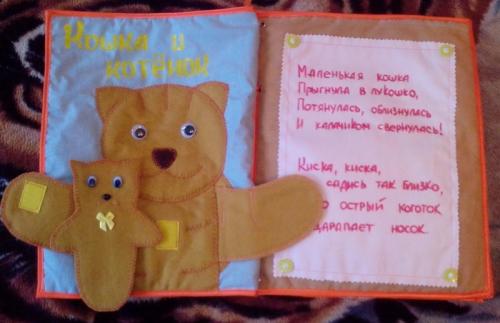 Кошка и
котёнок
Маленькая кошка
Прыгнула в лукошко,
Потянулась, облизнулась
И калачиком свернулась!
Киска, киска,
садись так близко,
острый коготок
царапает носок.